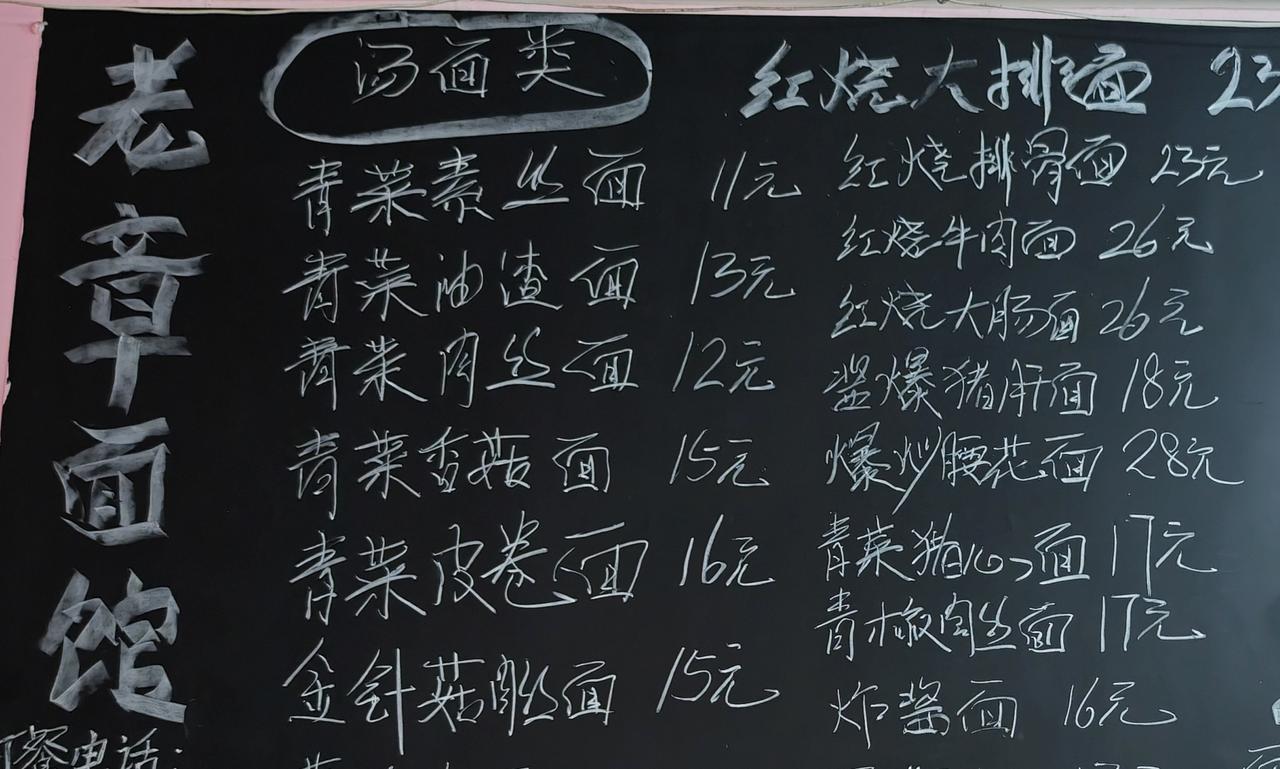 老章面馆
订餐电话:
汤面类
青菜素丝面 11元
青菜油渣面 13元
青菜肉丝面 12元
青菜香菇面 15元
青菜皮卷面 16元
金针菇肉丝面 15元
红烧大排面 23
红烧排骨面 23元
红烧牛肉面 26元
红烧大肠面 26元
酱爆猪肝面 18元
爆炒腰花面 28元
青菜猪心面 17元
青椒肉丝面 17元
炸酱面 16元